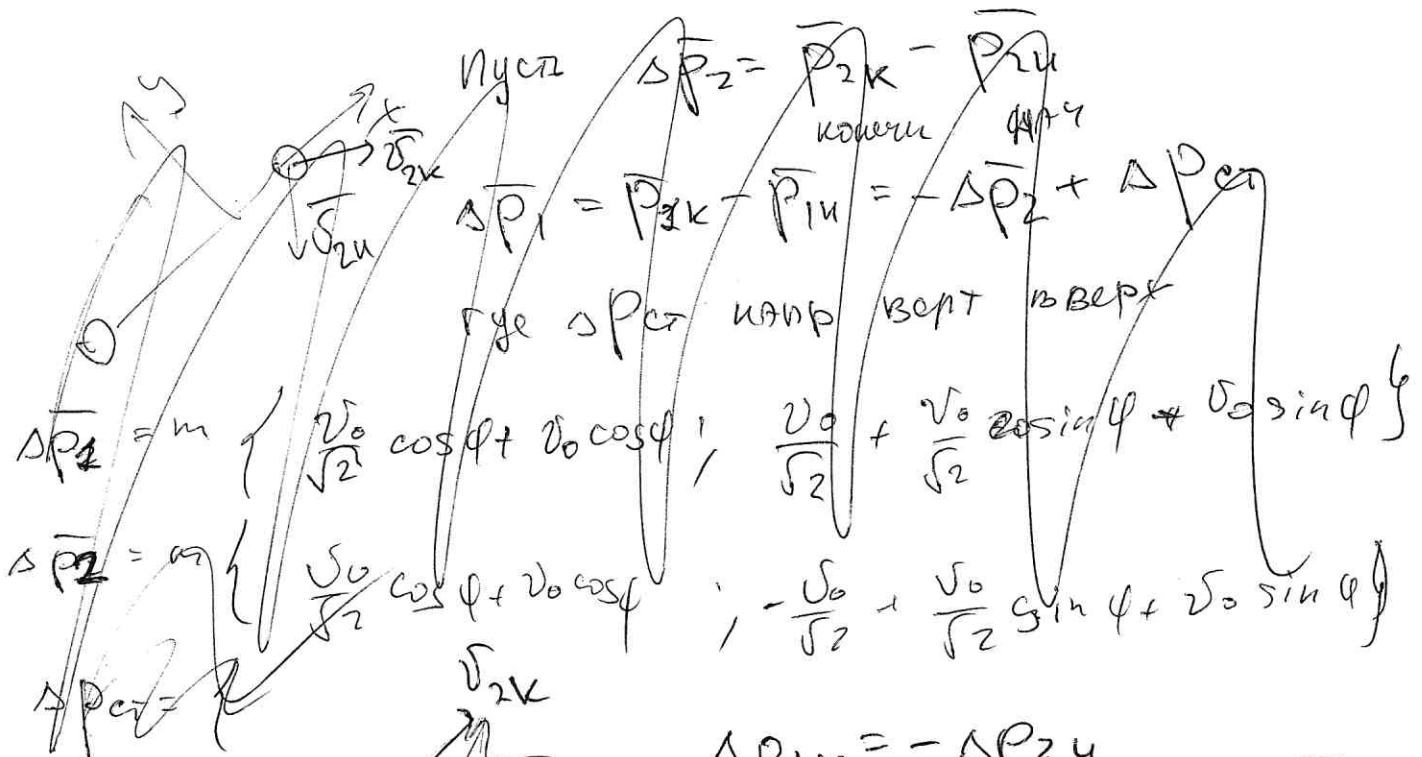 Пуст Δp̅₂ = p̅₂ₖ − p̅₂ₙ
конечн нач
y x v̅₂ₖ
v̅₂ₙ
Δp̅₁ = p̅₁ₖ − p̅₁ₙ = −Δp̅₂ + ΔPст
где ΔPст напр верт вверх
Δp̅₁ = m { v₀/√2 cosφ + v₀ cosφ ; v₀/√2 + v₀/√2 sinφ + v₀ sinφ }
Δp̅₂ = m { v₀/√2 cosφ + v₀ cosφ ; −v₀/√2 + v₀/√2 sinφ + v₀ sinφ }
ΔPст = {
v̅₂ₖ
= −ΔP₂ᵧ